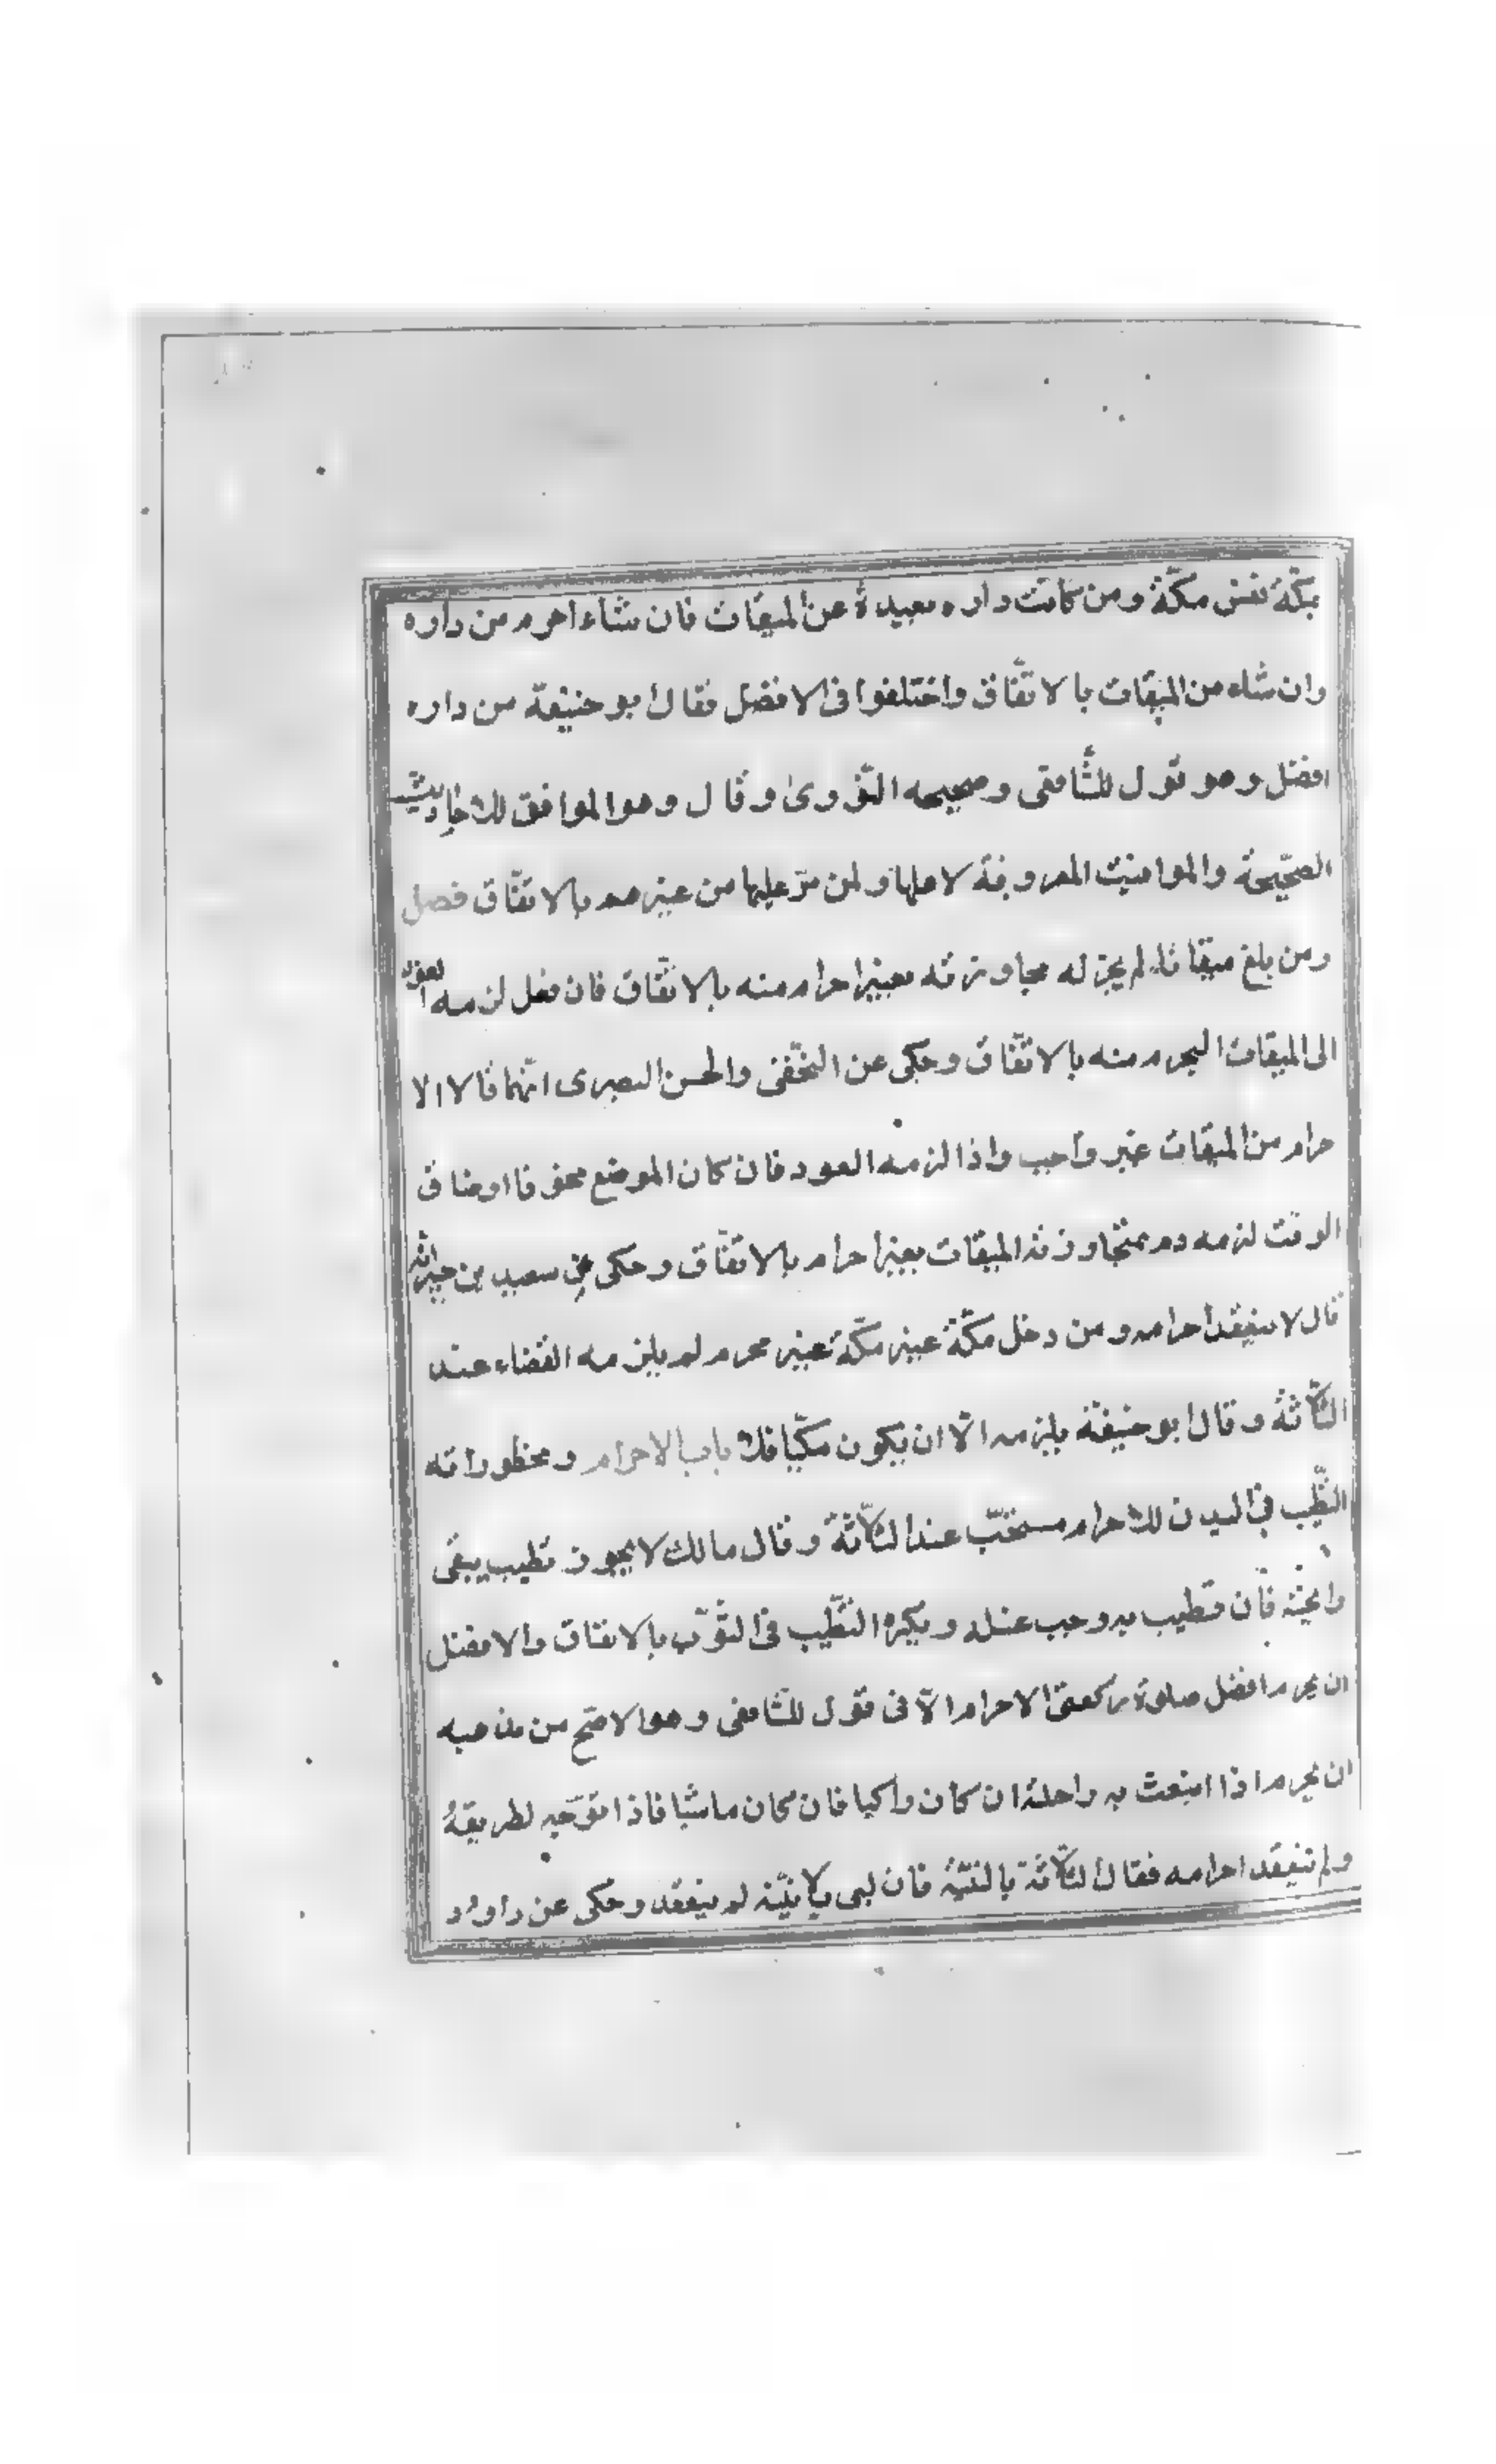 بمكّة نفس مكّة ومن كانت داره بعيدة عن الميقات فان شاء احرم من داره
وان شاء من الميقات بالاتّفاق واختلفوا فى الافضل فقال ابو حنيفة من داره
افضل وهو قول للشّافعى وصححه النّووى وقال وهو الموافق للاحاديث
الصّحيحة والمواقيت المعروفة لاهلها ولمن مرّ عليها من غيرهم بالاتفّاق فصل
ومن بلغ ميقاتا لم يجز له مجاوزته بغير احرام منه بالاتّفاق فان فعل لزمه العود
الى الميقات ليحرم منه بالاتّفاق وحكى عن النّخعى والحسن البصرى انّهما قالا الا
حرام من الميقات غير واجب واذا لزمه العود فان كان الموضع مخوفا او ضاق
الوقت لزمه دم بمتجاوزة الميقات بغير احرام بالاتفّاق وحكى عن سعيد بن جبير انّه
قال لا ينعقد احرامه ومن دخل مكّة غير مكّة غير محرم لم يلزمه القضاء عند
الثّلاثة وقال ابو حنيفة يلزمه الّا ان يكون مكّيا فلا باب الاحرام ومحظوراته
التّطيّب فى البدن للاحرام مستحبّ عند الثّلاثة وقال مالك لا يجوز تطيب يبقى
رائحته فان تطيب به وجب غسله ويكره التّطيّب فى الثّوب بالاتفاق والافضل
ان يحرم افضل صلوة ركعتى الاحرام الّا فى قول للشّافعى وهو الاصّح من مذهبه
ان يحرم اذا انبعث به راحلة ان كان راكبا فان كان ماشيا فاذا توجّه لطريقهُ
ولم تنعقد احرامه فقال الثّلاثة بالنّيّة فان لبى بلا نيّة لم ينعقد وحكى عن داود